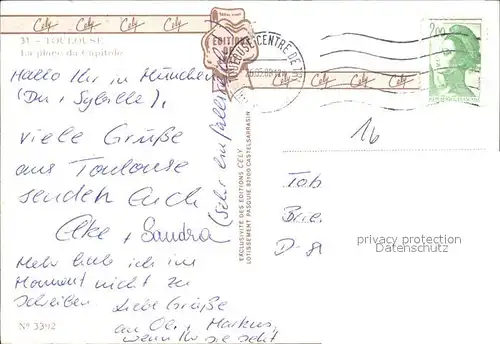 Cely Cely Cely
31 - TOULOUSE
La place du Capitole
EDITIONS
Cely Cely Cely
TOULOUSE-CENTRE DE TRI
2,00
Hallo Ihr in München
(Du + Sybille),
viele Grüße
aus Toulouse
senden Euch
Elke + Sandra
Mehr hab ich im
Moment nicht zu
schreiben Liebe Grüße
an Markus,
wenn Ihr sie seht
Nº 3392
EXCLUSIVITE DES EDITIONS CELY
LOTISSEMENT PASQUIE 82100 CASTELSARRASIN
16
D-8
privacy protection
Datenschutz